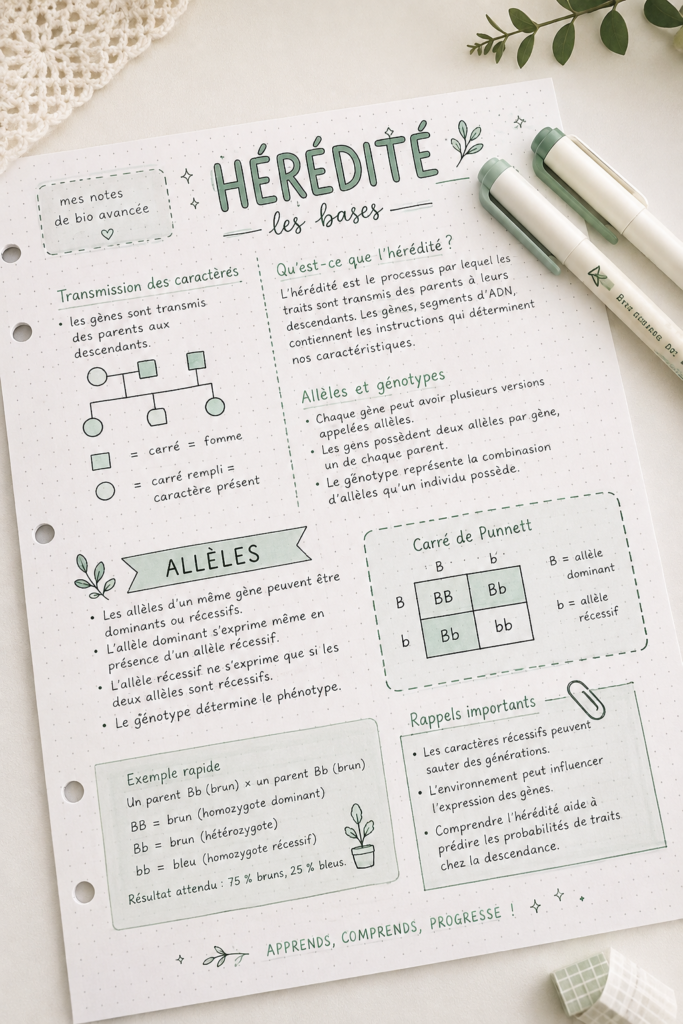 mes notes
de bio avancée
HÉRÉDITÉ
les bases
Transmission des caractérs
• les gènes sont transmis
des parents aux
descendants.
= carré = fomme
= carré rempli =
caractère présent
Qu'est-ce que l'hérédité ?
L'hérédité est le processus par lequel les
traits sont transmis des parents à leurs
descendants. Les gènes, segments d'ADN,
contiennent les instructions qui déterminent
nos caractéristiques.
Allèles et génotypes
• Chaque gène peut avoir plusieurs versions
appelées allèles.
• Les gens possèdent deux allèles par gène,
un de chaque parent.
• Le génotype représente la combinasion
d'allèles qu'un individu possède.
ALLÈLES
• Les allèles d'un même gène peuvent être
dominants ou récessifs.
• L'allèle dominant s'exprime même en
présence d'un allèle récessif.
• L'allèle récessif ne s'exprime que si les
deux allèles sont récessifs.
• Le génotype détermine le phénotype.
Carré de Punnett
B b
B BB Bb
b Bb bb
B = allèle
dominant
b = allèle
récessif
Exemple rapide
Un parent Bb (brun) × un parent Bb (brun)
BB = brun (homozygote dominant)
Bb = brun (hétérozygote)
bb = bleu (homozygote récessif)
Résultat attendu : 75 % bruns, 25 % bleus.
Rappels importants
• Les caractères récessifs peuvent
sauter des générations.
• L'environnement peut influencer
l'expression des gènes.
• Comprendre l'hérédité aide à
prédire les probabilités de traits
chez la descendance.
APPRENDS, COMPRENDS, PROGRESSE !